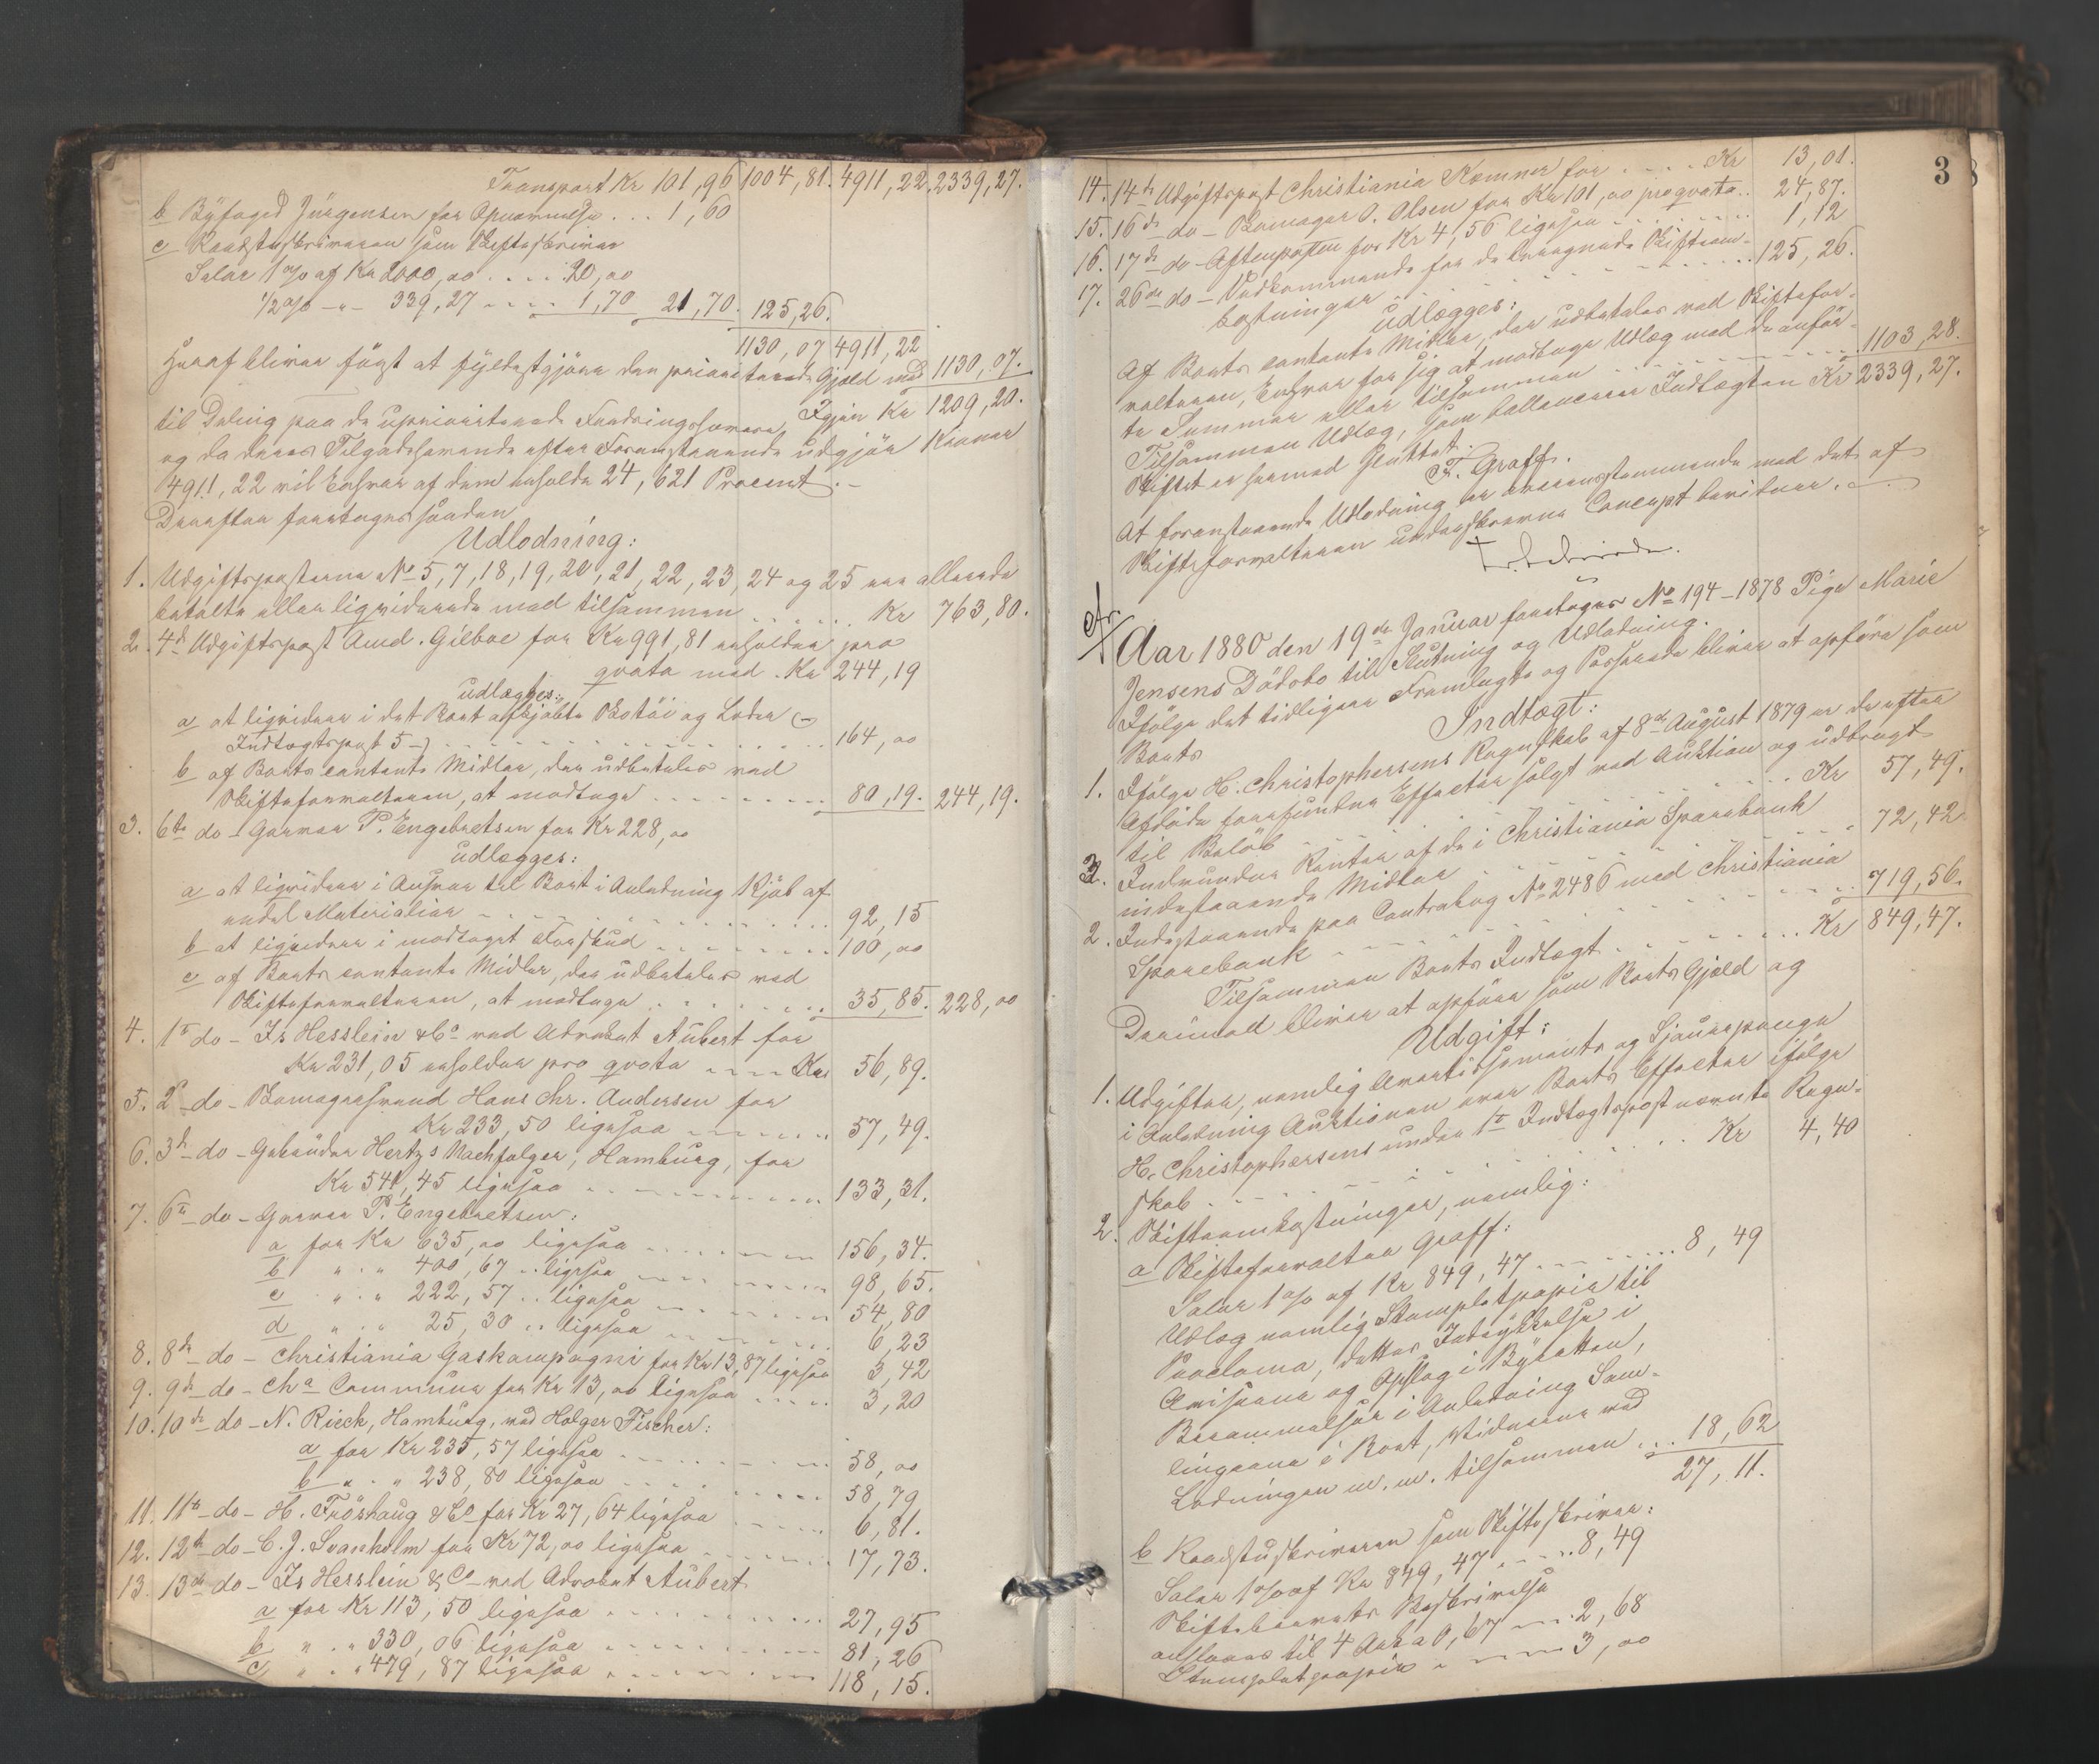 Transport Kr 101,96 1004,81. 4911,22. 2339,27.
b Byfoged Jürgensen for Opnævnelse . . . 1,60
c Raadstuskriveren som Skifteskriver
Salær 1 % af Kr 2000,00 . . . . 20,00
1/2 % -"- 339,27 . . . . 1,70 21,70. 125,26.
1130,07 4911,22
Heraf bliver først at fyldestgjøre den prioriterede Gjæld med 1130,07.
Igjen Kr 1209,20.
til Deling paa de uprioriterede Fordringshavere,
og da deres Tilgodehavende efter Foranstaaende udgjør Kroner
4911,22 vil Enhver af dem erholde 24,621 Procent. -
Derefter foretoges saadan
Udlodning:
1. Udgiftsposterne No 5, 7, 18, 19, 20, 21, 22, 23, 24 og 25 ere allerede
betalte eller liqviderede med tilsammen . . . . . . Kr 763,80.
2. 4de Udgiftspost Amd. Gilboe for Kr 991,81 erholder pro
qvota med . Kr 244,19
udlægges:
a at liqvidere i det Boet afkjøbte Skotøi og Læder (-
Indtægtspost 5 -) . . . . . . 164,00
b af Boets contante Midler, der udbetales ved
Skifteforvalteren, at modtage . . . . . . 80,19. 244,19.
3. 6te do - Garver P. Engebretsen for Kr 228,00
udlægges:
a at liqvidere i Ansvar til Boet i Anledning Kjøb af
endel Materialier . . . . . . 92,15
b at liqvidere i modtaget Forskud . . . . . . 100,00
c af Boets contante Midler, der udbetales ved
Skifteforvalteren, at modtage . . . . . . 35,85. 228,00
4. 1ste do - Is Hesslein & Co ved Advokat Aubert for
Kr 231,05 erholder pro qvota . . . . Kr 56,89.
5. 2den do - Skomagersvend Hans Chr. Andersen for
Kr 233,50 ligesaa . . . . . . 57,49.
6. 3die do - Gebrüder Hertzs Nachfolger, Hamburg, for
Kr 541,45 ligesaa . . . . . . 133,31.
7. 6te do - Garver P. Engebretsen:
a for Kr 635,00 ligesaa . . . . . . 156,34.
b " . " 400,67 . . ligesaa . . . . . . 98,65.
c " . " 222,57 . . ligesaa . . . . . . 54,80
d " . " 25,30 . . ligesaa . . . . . . 6,23
8. 8de do - Christiania Gaskompagni for Kr 13,87 ligesaa 3,42
9. 9de do - Cha Commune for Kr 13,00 ligesaa . . . . . 3,20
10. 10de do - N. Rieck, Hamburg, ved Holger Fischer:
a for Kr 235,57 ligesaa . . . . . . 58,00
b " . " 238,80 ligesaa . . . . . . 58,79
11. 11te do - H. Fröshaug & Co for Kr 27,64 ligesaa . . . . . 6,81.
12. 12te do - C. J. Svanholm for Kr 72,00 ligesaa . . . . . . 17,73.
13. 13de do - Is Hesslein & Co ved Advokat Aubert
a for Kr 113,50 ligesaa . . . . . . 27,95
b " . " 330,06 ligesaa . . . . . . 81,26
c " . " 479,87 ligesaa . . . . . . 118,15.
3
14. 14de Udgiftspost Christiania Kæmner for . . . . Kr 13,01.
15. 16de do - Skomager O. Olsen for Kr 101,00 pro qvota . . 24,87.
16. 17de do - Aftenposten for Kr 4,56 ligesaa . . . . . . 1,12
17. 26de do - Vedkommende for de beregnede Skifteom-
kostninger . . . . . . 125,26.
udlægges:
Af Boets contante Midler, der udbetales ved Skiftefor-
valteren, Enhver for sig at modtage Udlæg med de anfør-
te Summer eller tilsammen . . . . . . 1103,28.
Tilsammen Udlæg, som ballancerer Indtægten Kr 2339,27.
Skiftet er hermed sluttet.
F. Graff.
At foranstaaende Udlodning er overensstemmende med det af
Skifteforvalteren underskrevne Concept bevidner.
Aar 1880 den 19de Januar foretoges No 194 - 1878 Pige Marie
Jensens Dödsbo til Slutning og Udlodning.
Ifølge det tidligere Fremlagte og Passerede bliver at opføre som
Boets Indtægt:
1. Ifølge H. Christophersens Regnskab af 8de August 1879 er de efter
Afdøde forefundne Effecter solgt ved Auktion og udbragt
til Beløb . . . . . . Kr 57,49.
2. Indvundne Renter af de i Christiania Sparebank
indestaaende Midler . . . . . . 72,42.
2. Indestaaende paa Contrabog No 2486 med Christiania
Sparebank . . . . . . 719,56.
Tilsammen Boets Indtægt . . . . . . Kr 849,47.
Derimod bliver at opføre som Boets Gjæld og
Udgift:
1. Udgifter, nemlig Avertissements og Sjauerpenge
i Anledning Auktionen over Boets Effecter ifølge
H. Christophersens under 1ste Indtægtspost nævnte Regn-
skab . . . . . . Kr 4,40
2. Skifteomkostninger, nemlig:
a Skifteforvalter Graff:
Salær 1 % af Kr 849,47 . . . . . . 8,49
Udlæg nemlig Stemplet papir til
Proclama, dettes Indrykkelse i
Aviserne og Opslag i Byretten,
Berammelser i Anledning Sam-
lingerne i Boet, Vidnerne ved
Lodningen m. m. tilsammen . . . 18,62
27,11.
b Raadstuskriveren som Skifteskriver:
Salær 1 % af Kr 849,47 . . . . . 8,49
Skiftebrevets Beskrivelse
anslaaes til 4 Ark a 0,67 . . . . 2,68
Stemplet papir . . . . . 3,00